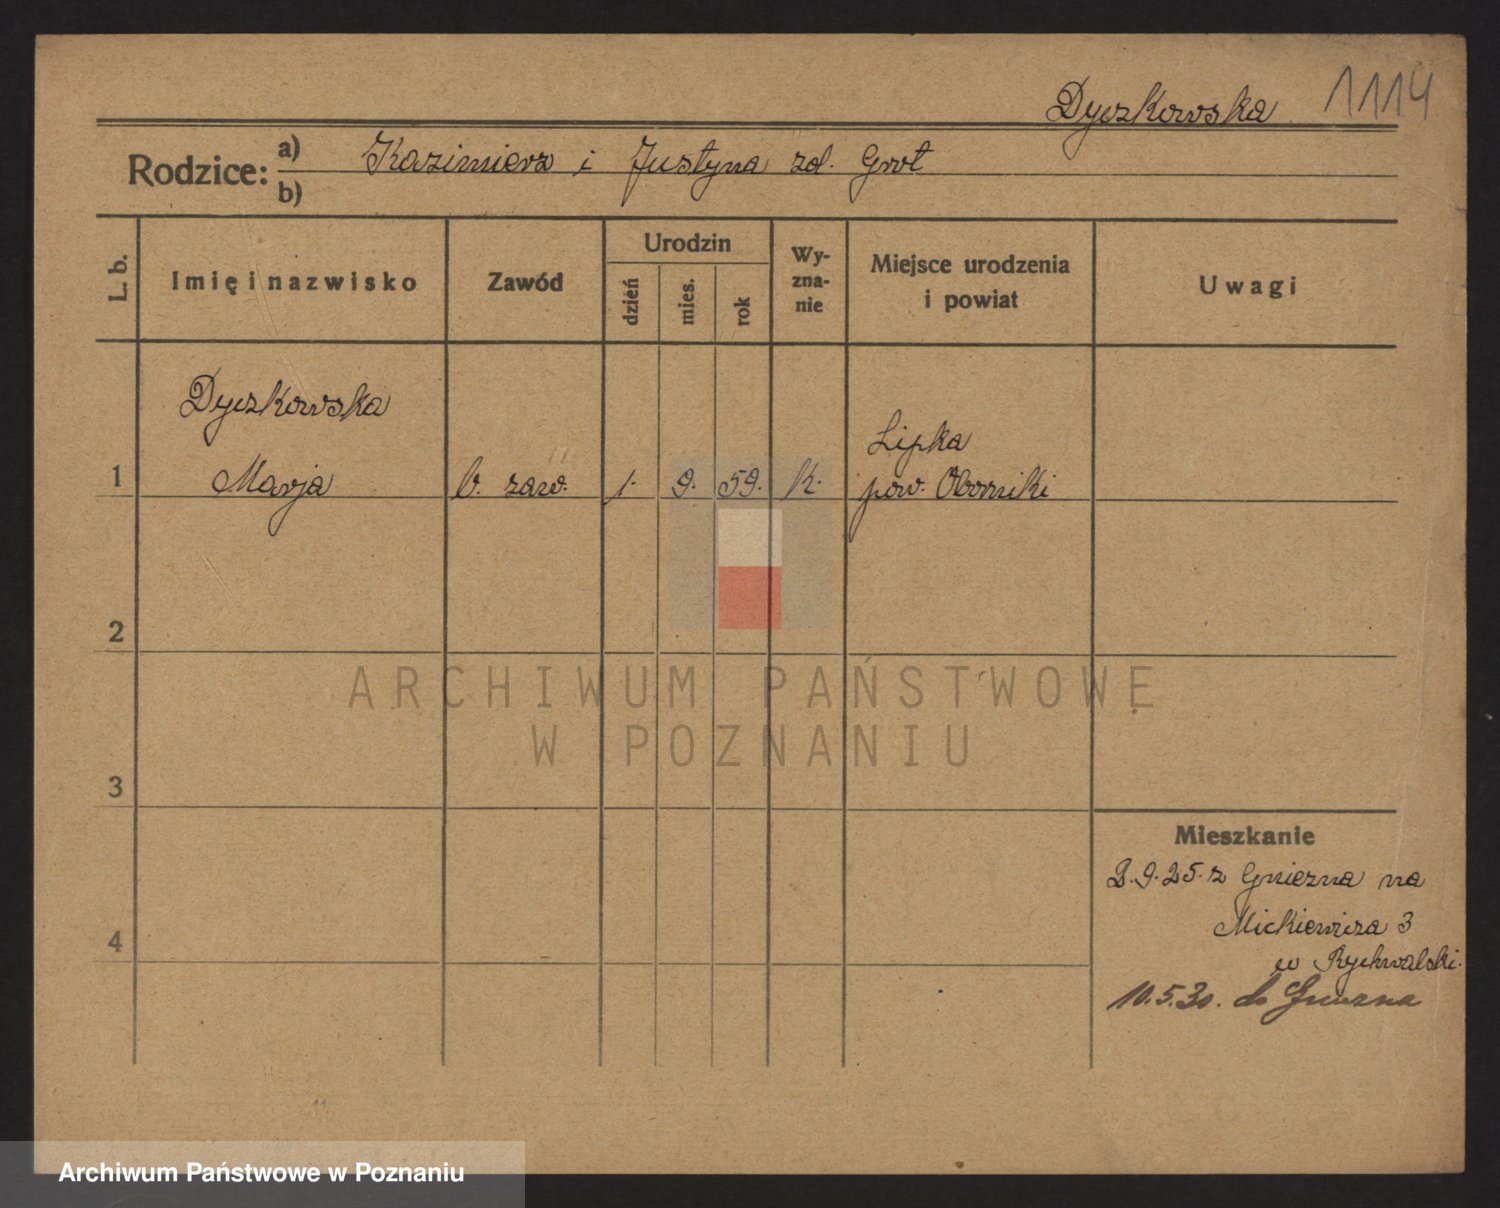 Dyczkowska 1114
Rodzice: a) b) Kazimierz i Justyna zd. Grot
L. b.
Imię i nazwisko
Zawód
Urodzin
dzień
mies.
rok
Wy-
zna-
nie
Miejsce urodzenia
i powiat
Uwagi
Dyczkowska
1 Marja b. zaw. 1. 9. 59. k. Lipka
pow. Oborniki
2
ARCHIWUM PAŃSTWOWE
W POZNANIU
3
Mieszkanie
2.9.25. z Gniezna na
Mickiewicza 3
w Rychwalski.
4
10.5.30. do Gniezna
Archiwum Państwowe w Poznaniu